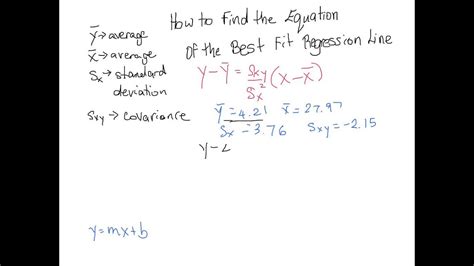 How to Find the Equation
Of the Best Fit Regression Line
Ȳ → average
X̄ → average
Sx → standard deviation
Sxy → covariance
Y-Ȳ = Sxy/Sx² (X-X̄)
Ȳ = 4.21 x̄ = 27.97
Sx = 3.76 Sxy = -2.15
Y-2
y = mx + b